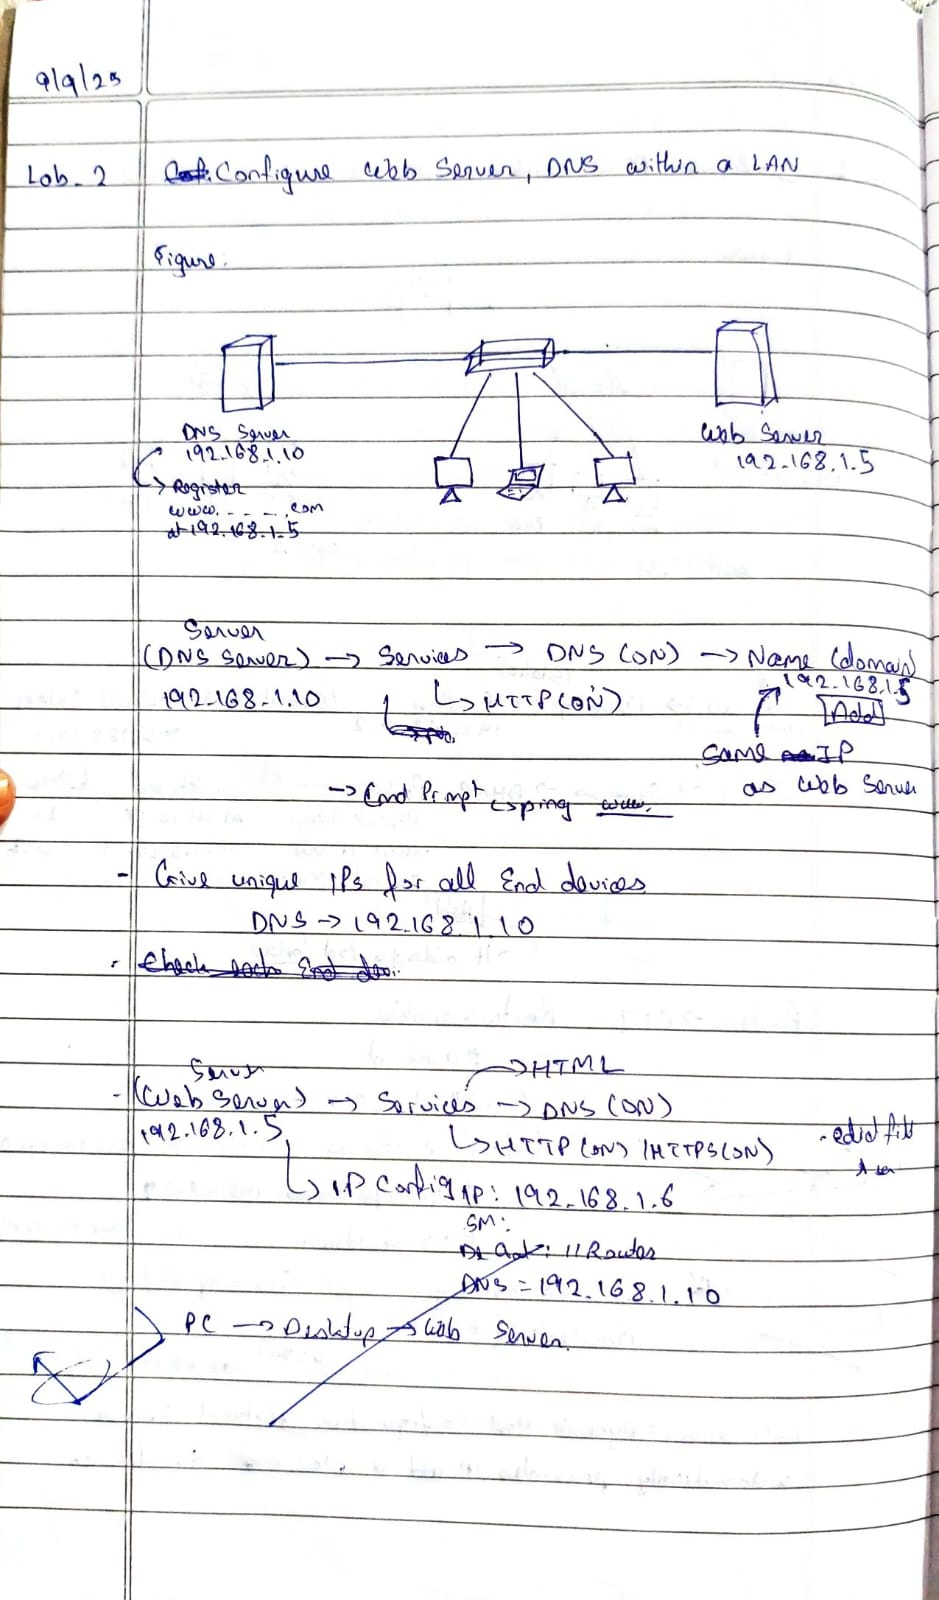 9/9/25
Lab. 2 Configure Web Server, DNS within a LAN
Figure.
DNS Server
192.168.1.10
Register
www. - - - .com
at 192.168.1.5
Web Server
192.168.1.5
Server
(DNS Server) → Services → DNS (ON) → Name (domain)
192.168.1.10 ↳ HTTP (ON) 192.168.1.5
Add
Same IP
as Web Server
→ Cmd Prompt ↳ ping www.
- Give unique IPs for all End devices
DNS → 192.168.1.10
Check End
Server → HTML
- (Web Server) → Services → DNS (ON)
192.168.1.5 ↳ HTTP (ON) / HTTPS (ON)
↳ IP Config IP: 192.168.1.6
SM:
: 11 Router
DNS = 192.168.1.10
PC → Desktop → Web Server.